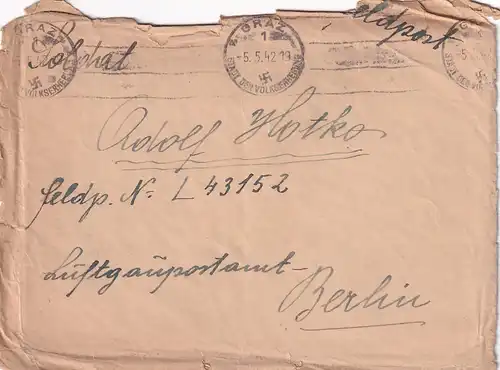 GRAZ 1
-5.5.42 19
STADT DER VOLKSERHEBUNG
Soldat
Feldpost
Adolf Hotko
feldp. No L 43152
Luftgaupostamt-
Berlin